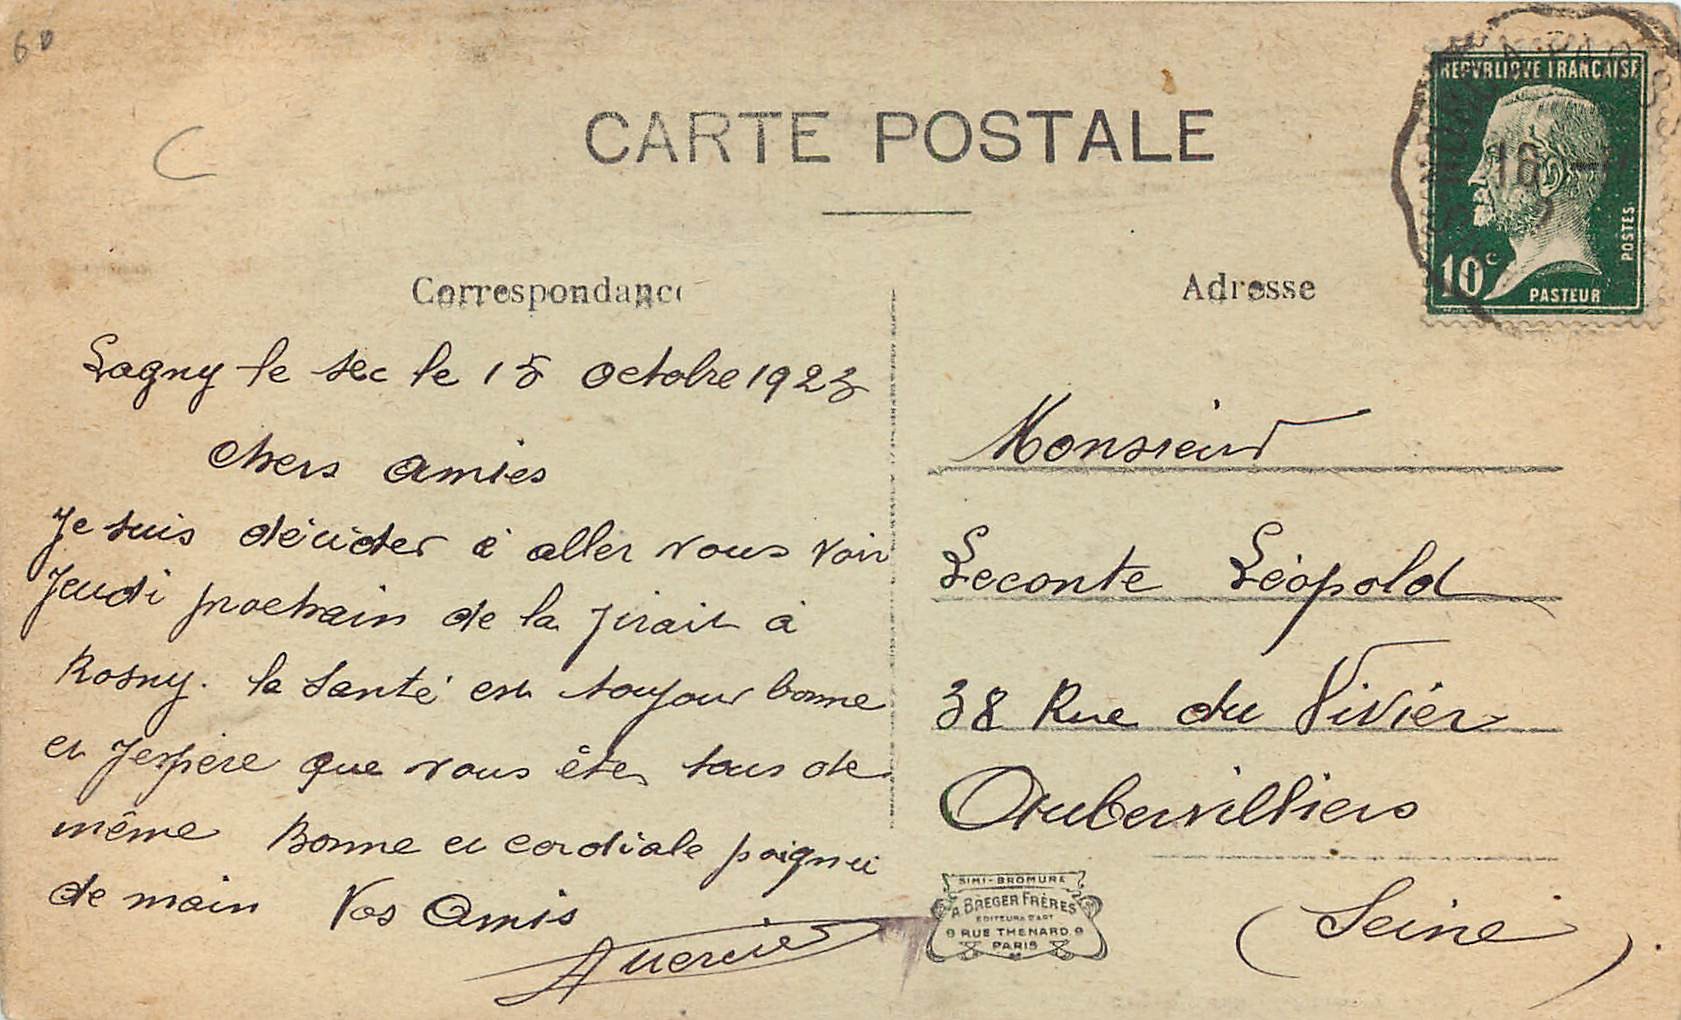 60
C
CARTE POSTALE
REPVBLIQVE FRANCAISE
16
10c
POSTES
PASTEUR
Correspondance
Lagny le sec le 15 octobre 1923
chers amies
Je suis décider à aller vous voir
Jeudi prochain de la j'irait à
Rosny. la santé est toujour bonne
et J'espère que vous êtes tous de
même Bonne et cordiale poignee
de main Vos Amis
Adresse
Monsieur
Leconte Léopold
38 Rue du Vivier
Aubervilliers
(Seine).
SIMI-BROMURE
A. BREGER FRÈRES
EDITEURS D'ART
9 RUE THENARD 9
PARIS